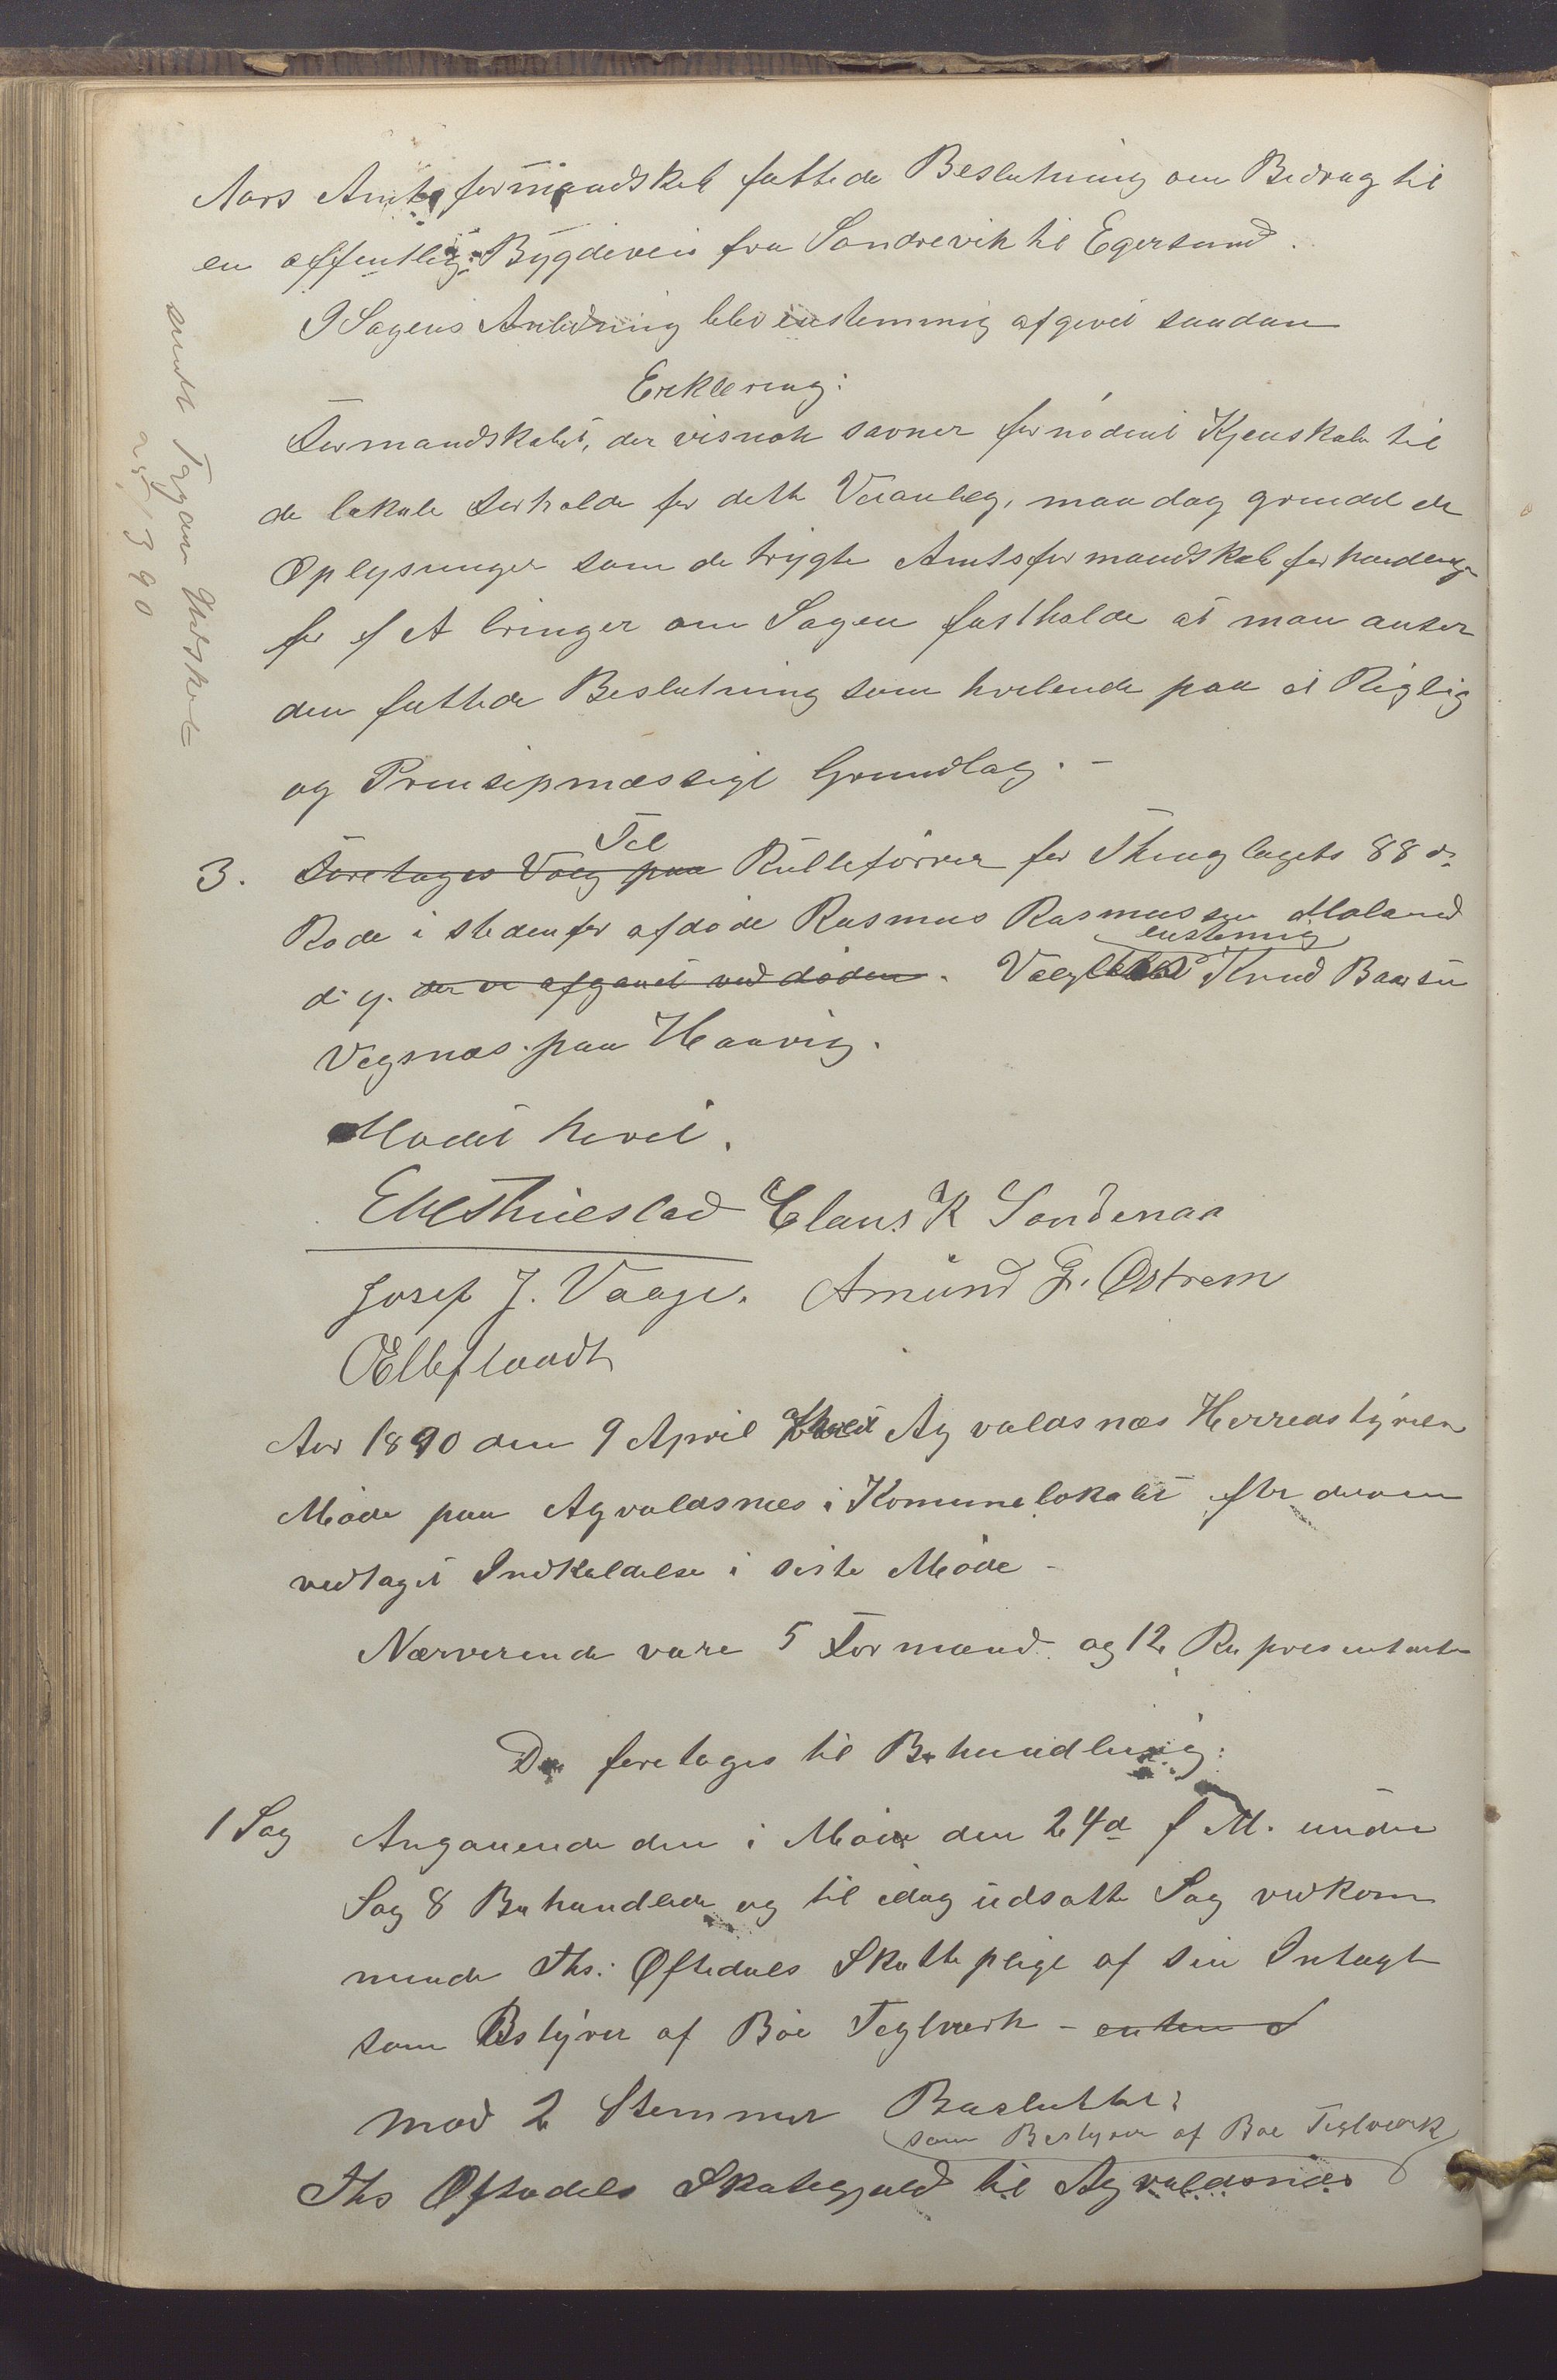 Aars Amtsformandskab fattede Beslutning om Bidrag til
en offentlig Bygdeveis fra Sandrevik til Egersund.
I Sagens Anledning blev enstemmig afgivet saadan
Erklering:
Formandskabet, der visnok savner fornødent Kjenskab til
de lokale Forholde for dette Veianleg, maa dog grundet de
Oplysninger som de trygte Amtsformandskab forhandlinger
for f A bringer om Sagen fastholde at man anser
den fattede Beslutning som hvilende paa et Rigtig
og Prinsipmæssigt Grundlag. -
sendt Fogden Udskrevet
25/3 90
3. Foretages Valg paa Til Rulleførrer for Thinglagets 88 de
Rode i stedenfor afdøde Rasmus Rasmussen Moland
d. y. der er afgaaet ved døden. Valgtes enstemig Knud Baarsen
Vegsnæs paa Haavig.
Mødet hevet.
E M Thuestad Claus K Sandenaa
Josef J. Vaage. Amund G. Østrem
O Elleflaadt
Aar 1890 den 9 April afholdt Agvaldsnæs Herredstyrelse
Møde paa Agvaldsnæs i Komunelokalet efter derom
vedtaget Indkaldelse i siste Møde -
Nærverende vare 5 Formænd og 12 Representanter
Da foretages til Behandling:
1 Sag Angaaende den i Møde den 24de f M. under
Sag 8 Behandlede og til idag udsatte Sag vedkom
mende Ths: Øftedals Skattepligt af sin Intægt
som Bestyrer af Bøe Teglverk - enten
mod 2 Stemmer Besluttet:
som Bestyrer af Bøe Teglværk
Ths Øftedals Skategjeld til Agvaldsnæs